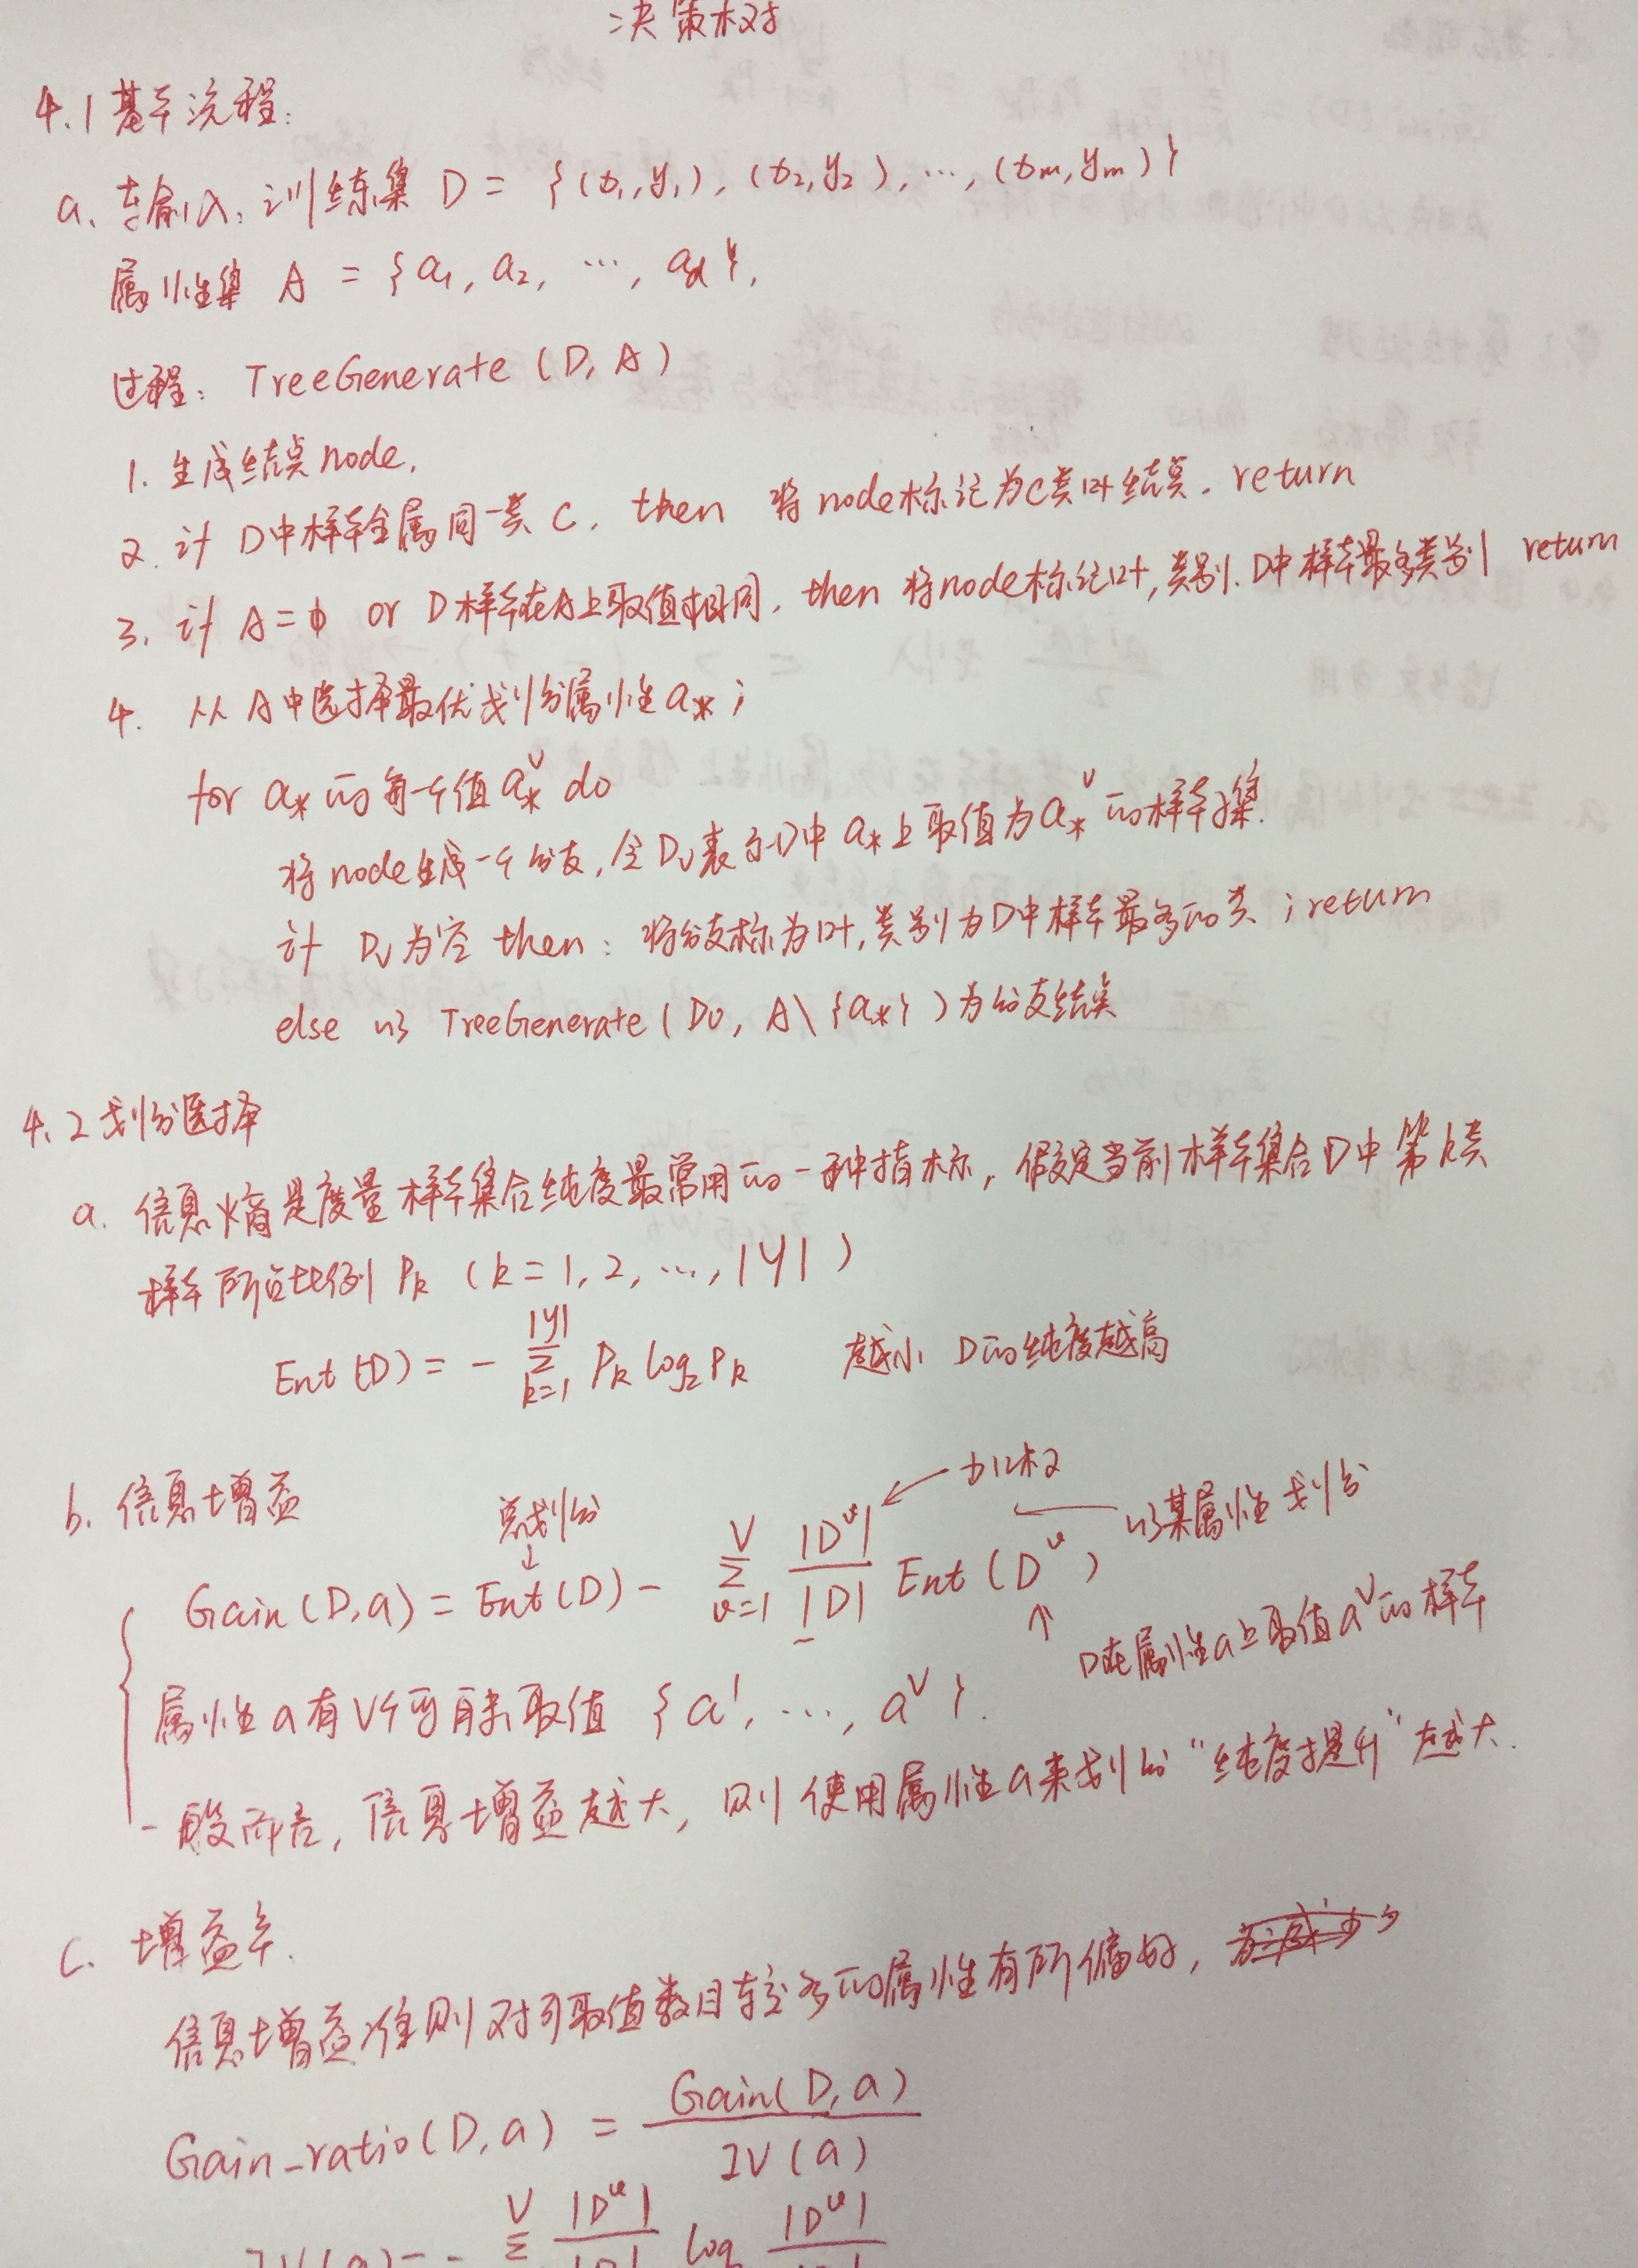 决策树
4.1 基本流程:
a. 输入: 训练集 D = {(x₁,y₁), (x₂,y₂), ..., (xm,ym)}
属性集 A = {a₁, a₂, ..., ad},
过程: TreeGenerate (D, A)
1. 生成结点node.
2. if D中样本全属同一类 C, then 将node标记为C类叶结点. return
3. if A=φ or D样本在A上取值相同, then 将node标记叶,类别.D中样本最多类别 return
4. 从A中选择最优划分属性a*;
for a*的每个值a*ᵛ do
将node生成一个分支,令Dv表示D中a*上取值为a*ᵛ的样本子集.
if Dv为空 then: 将分支标为叶,类别为D中样本最多的类; return
else 以 TreeGenerate(Dv, A\{a*})为分支结点
4.2 划分选择
a. 信息熵是度量样本集合纯度最常用的一种指标, 假定当前样本集合D中第k类
样本所占比例Pk (k=1,2,...,|y|)
Ent(D) = - |y|Σk=1 Pk log₂Pk 越小 D的纯度越高
b. 信息增益
总划分 加权 以某属性划分
Gain(D,a) = Ent(D) - VΣv=1 |Dᵛ|/|D| Ent(Dᵛ)
D在属性a上取值aᵛ的样本
属性a有V个可能取值 {a¹, ..., aⱽ}.
一般而言, 信息增益越大, 则使用属性a来划分“纯度提升”越大.
c. 增益率.
信息增益准则对可取值数目较多的属性有所偏好, 为减少
Gain_ratio(D,a) = Gain(D,a)/IV(a)
IV(a) = - VΣ |Dᵛ|/|D| log |Dᵛ|/|D|